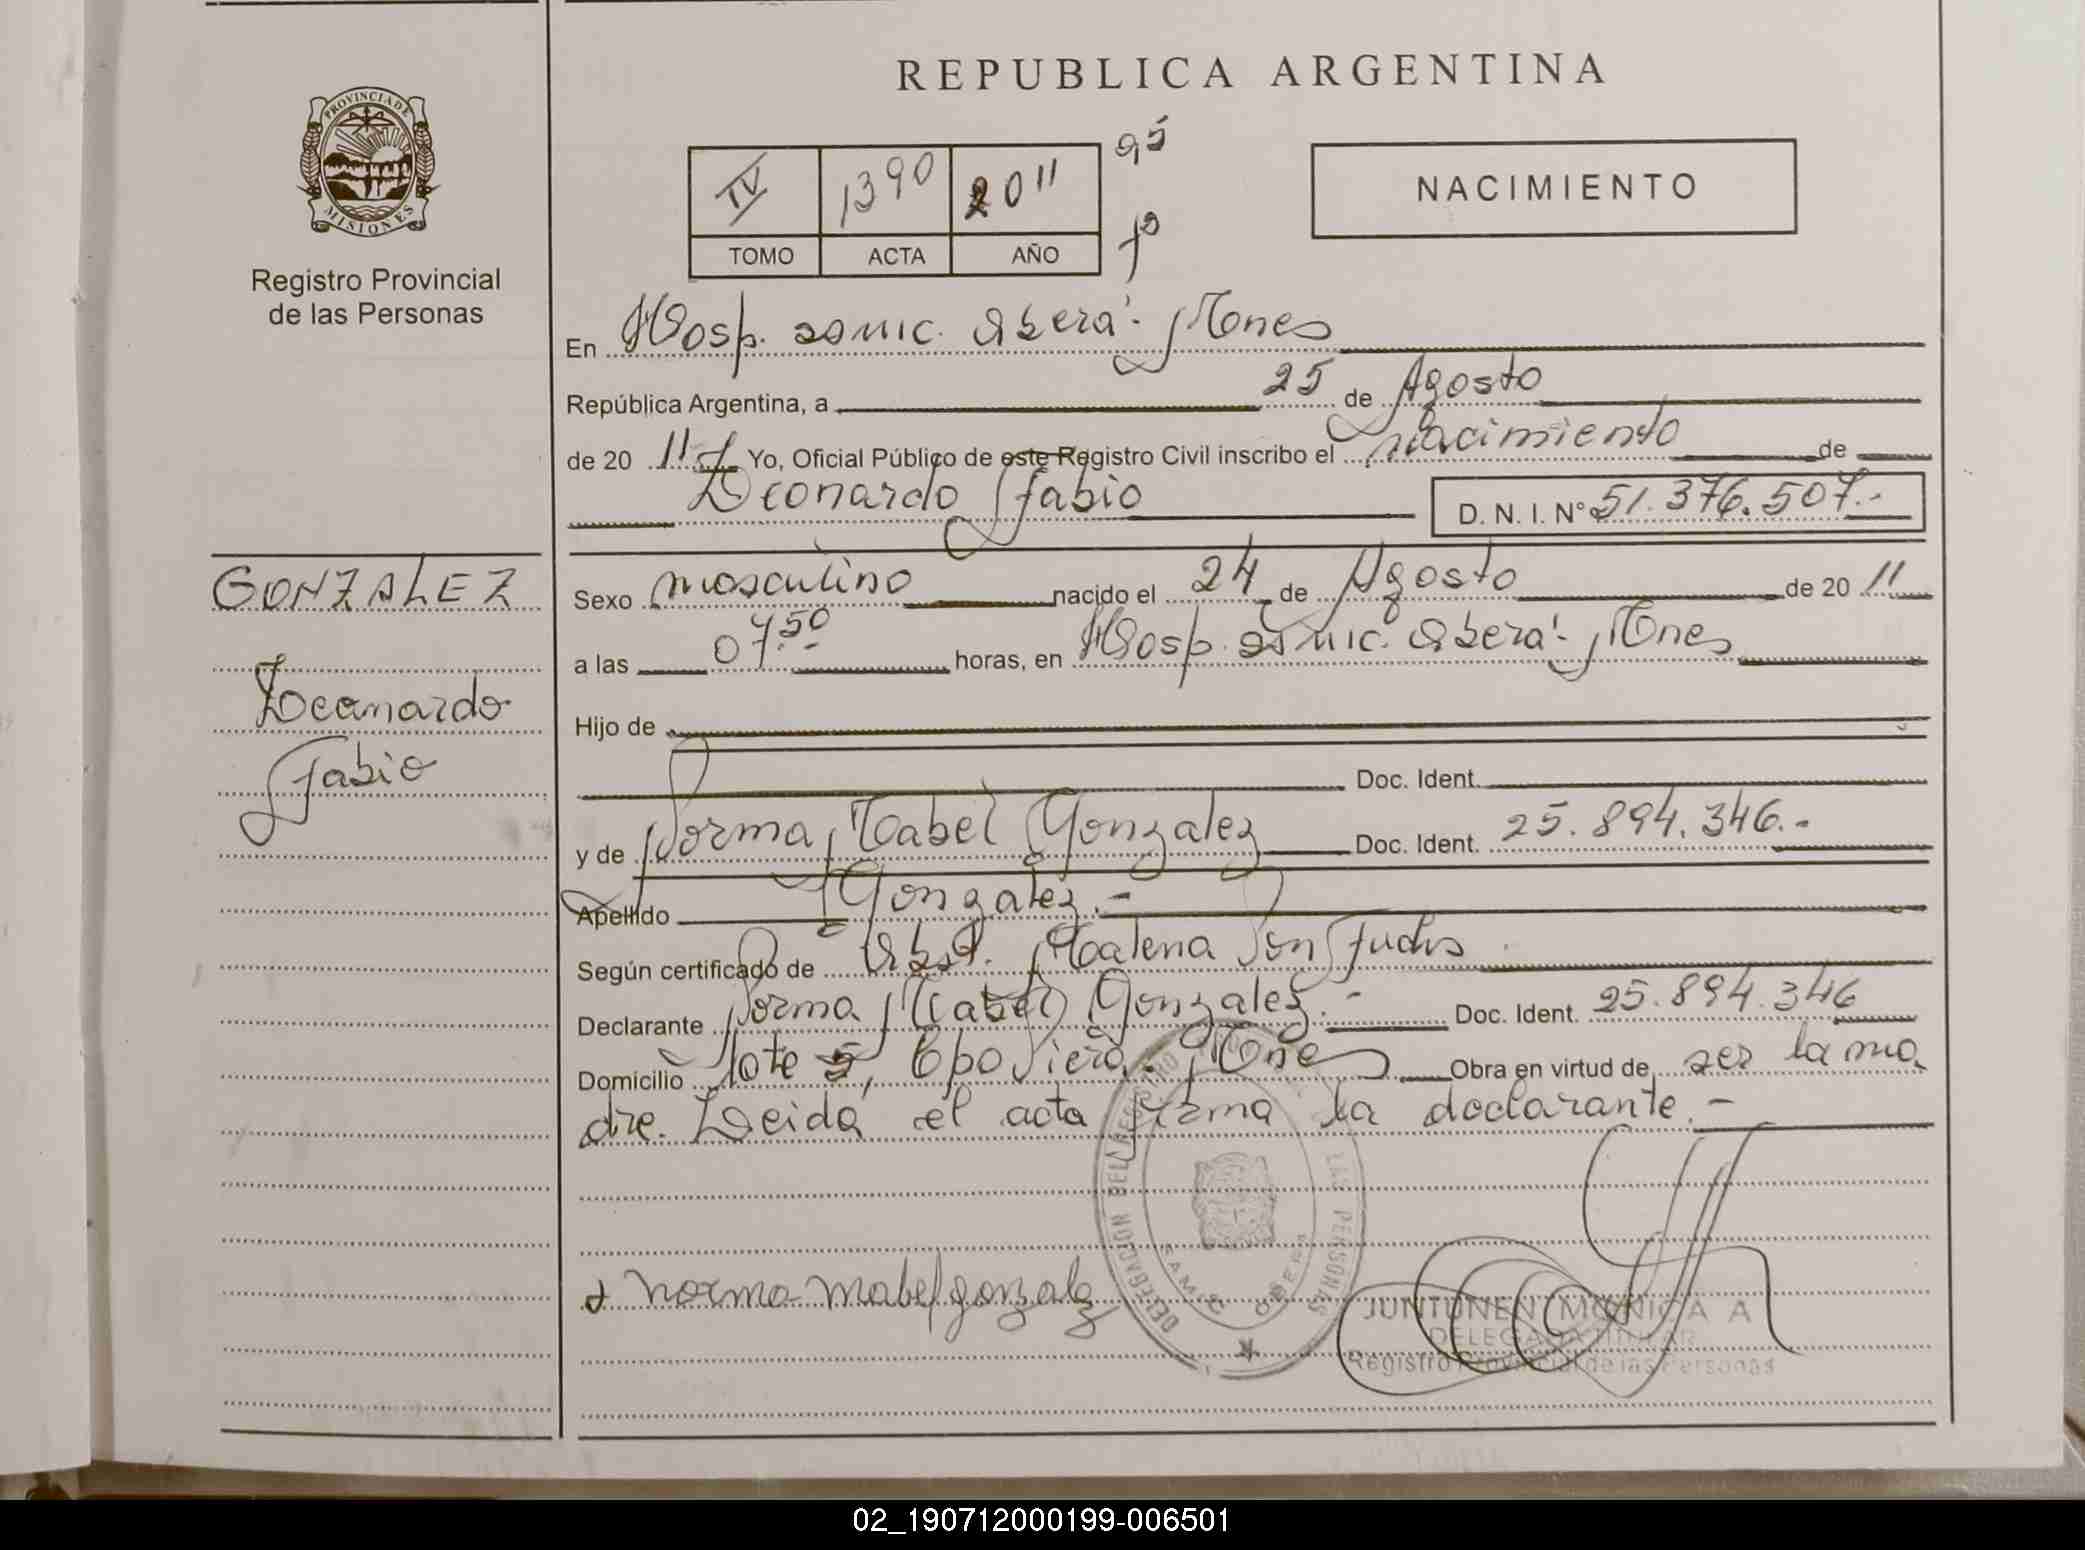 REPUBLICA ARGENTINA
PROVINCIA DE
MISIONES
Registro Provincial
de las Personas
IV 1390 2011
TOMO ACTA AÑO
95
fº
NACIMIENTO
En Hosp. samic. Oberá - Mnes
República Argentina, a 25 de Agosto
de 20 11 Yo, Oficial Público de este Registro Civil inscribo el nacimiento de
Leonardo Fabio D. N. I. Nº 51.376.507.-
GONZALEZ
Leonardo
Fabio
Sexo masculino nacido el 24 de Agosto de 20 11
a las 07.50 horas, en Hosp. samic. Oberá - Mnes
Hijo de
Doc. Ident.
y de Norma Mabel Gonzalez Doc. Ident. 25.894.346.-
Apellido Gonzalez.-
Según certificado de Obst. Malena
Declarante Norma Mabel Gonzalez.- Doc. Ident. 25.894.346
Domicilio lote 5, Cpo Viera - Mnes Obra en virtud de ser la ma
dre. Leida el acta firma la declarante.-
norma mabel gonzalez
DELEGACION DEL REGISTRO LAS PERSONAS
SAMIC OBERA
JUNTUNEN MONICA A
DELEGADA TITULAR
Registro Provincial de las Personas
02_190712000199-006501